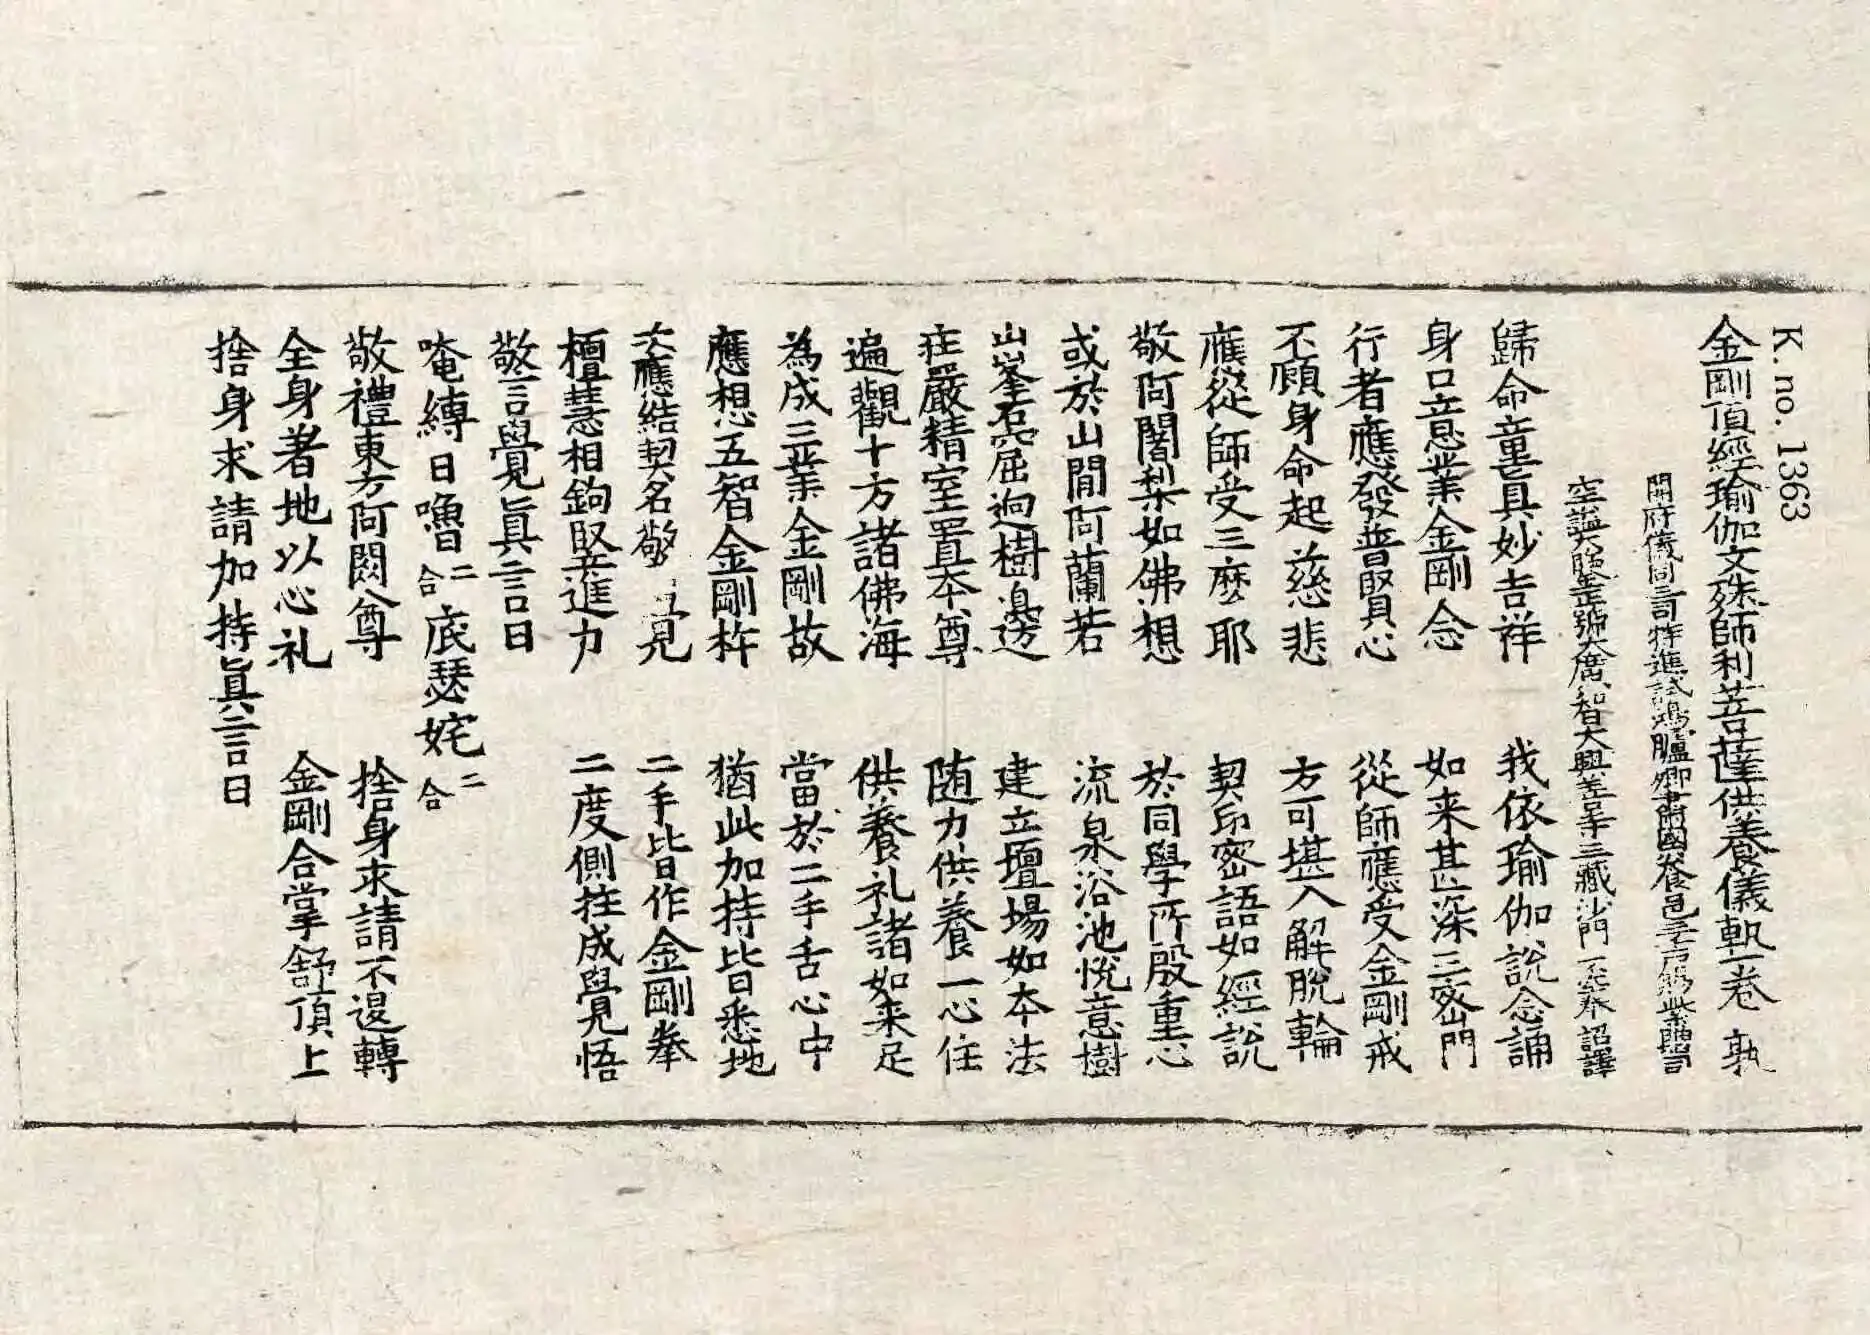 K. no. 1363
金剛頂經瑜伽文殊師利菩薩供養儀軌一卷 孰
開府儀同三司特進試鴻臚卿肅國公食邑三千戶賜紫贈司
空謚大鑒正號大廣智大興善寺三藏沙門不空奉 詔譯
歸命童真妙吉祥 我依瑜伽說念誦
身口意業金剛念 如来甚深三密門
行者應發普賢心 從師應受金剛戒
不顧身命起慈悲 方可堪入解脫輪
應從師受三麽耶 契印密語如經說
敬阿闍梨如佛想 於同學所殷重心
或於山閒阿蘭若 流泉浴池悅意樹
山峯石窟迥樹邊 建立壇場如本法
莊嚴精室置本尊 随力供養一心住
遍觀十方諸佛海 供養礼諸如来足
為成三業金剛故 當於二手舌心中
應想五智金剛杵 猶此加持皆悉地
次應結契名警覺 二手皆作金剛拳
檀慧相鉤竪進力 二度側拄成覺悟
敬言覺眞言曰
唵縛日嚕二合底瑟姹二合
敬禮東方阿閦尊 捨身求請不退轉
全身著地以心礼 金剛合掌舒頂上
捨身求請加持眞言曰